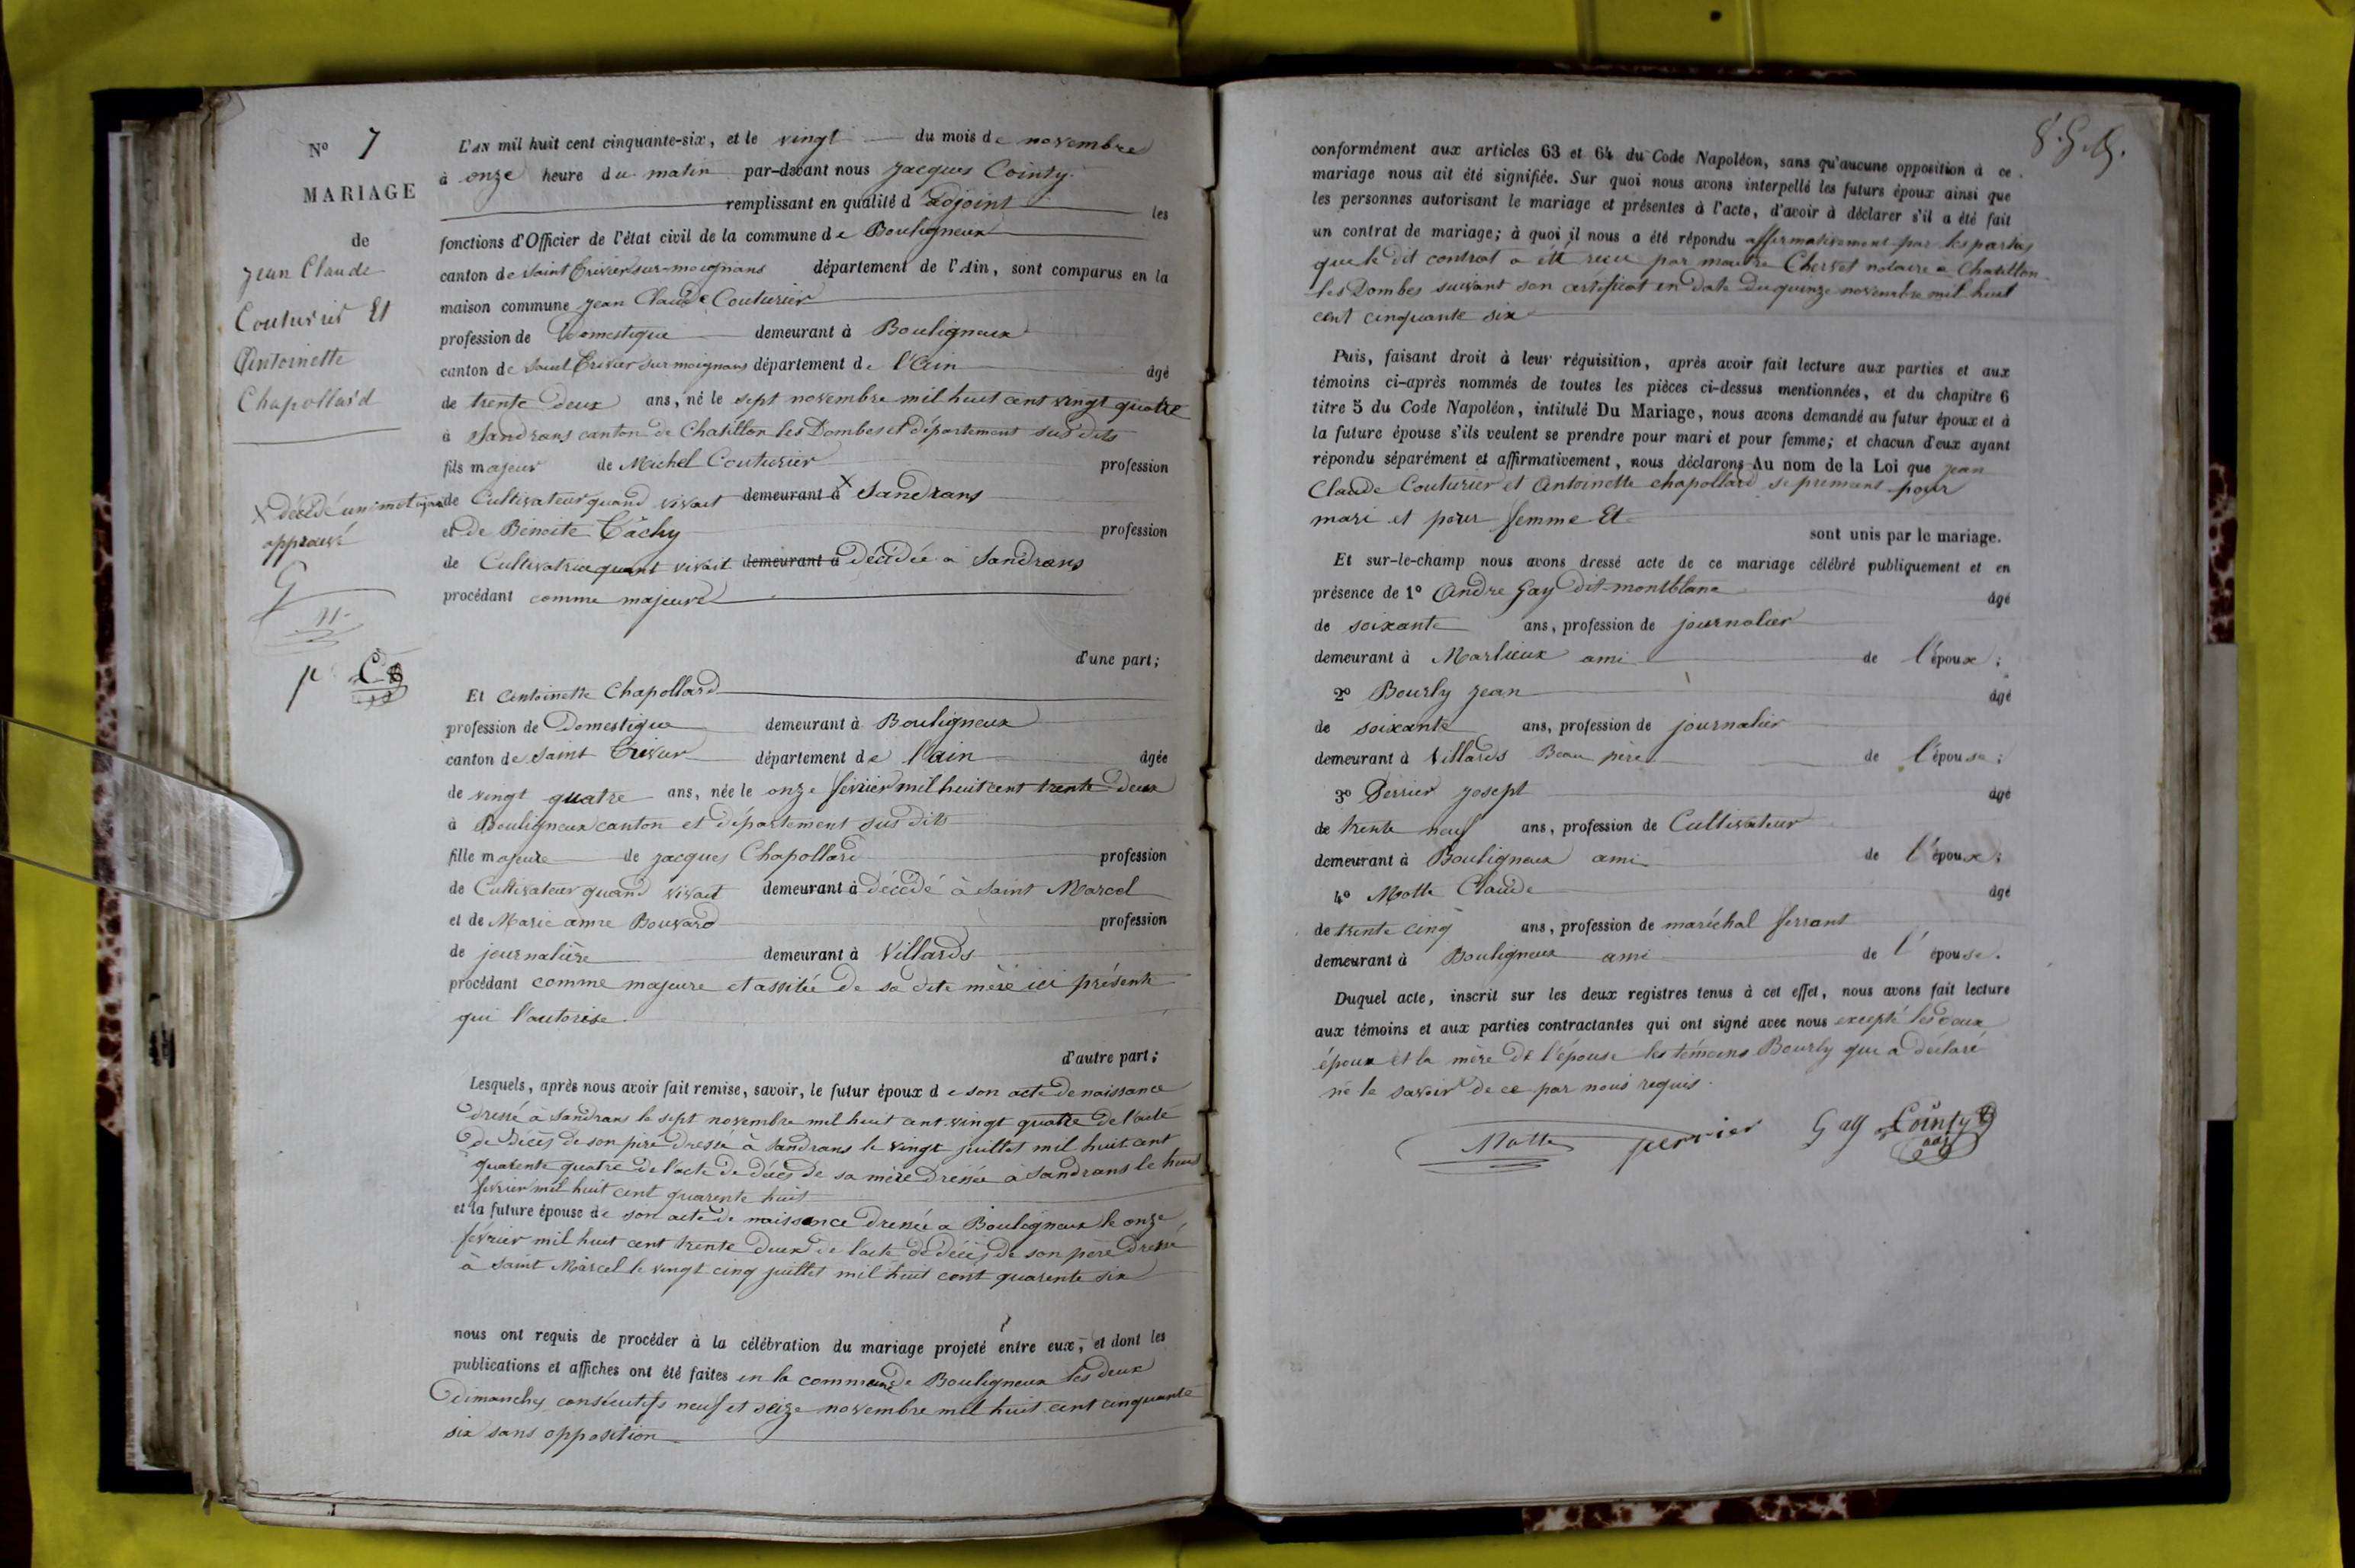 N° 7
MARIAGE
de
Jean Claude
Couturier Et
Antoinette
Chapollard
X décédé un mot rayé
approuvé
G
L'AN mil huit cent cinquante-six, et le vingt du mois de novembre
à onze heure du matin par-devant nous Jacques Cointy
remplissant en qualité d'adjoint les
fonctions d'Officier de l'état civil de la commune de Bouligneux
canton de Saint Trivier sur moignans département de l'Ain, sont comparus en la
maison commune Jean Claude Couturier
profession de Domestique demeurant à Bouligneux
canton de Saint Trivier sur moignans département de l'Ain âgé
de trente deux ans, né le sept novembre mil huit cent vingt quatre
à Sandrans canton de Chatillon les Dombes et département sus dits
fils majeur de Michel Couturier profession
de Cultivateur quand vivait demeurant à X Sandrans
et de Benoite Tâchy profession
de Cultivatrice quant vivait demeurant à Décédée à Sandrans
procédant comme majeure
d'une part;
Et Antoinette Chapollard
profession de Domestique demeurant à Bouligneux
canton de Saint Trivier département de l'ain âgée
de vingt quatre ans, née le onze février mil huit cent trente deux
à Bouligneux canton et département sus dits
fille majeure de Jacques Chapollard profession
de Cultivateur quand vivait demeurant à décédé à Saint Marcel
et de Marie anne Bouvard profession
de journalière demeurant à Villards
procédant comme majeure et assitée de sa dite mère ici présente
qui l'autorise.
d'autre part;
Lesquels, après nous avoir fait remise, savoir, le futur époux de son acte de naissance
dressé à Sandrans le sept novembre mil huit cent vingt quatre de l'acte
de décès de son père dressé à Sandrans le vingt juillet mil huit cent
quarente quatre de l'acte de décès de sa mère dressée à Sandrans le huit
février mil huit cent quarente huit
et la future épouse de son acte de naissance dressée à Bouligneux le onze
février mil huit cent trente deux de l'acte de décès de son père dressé
à Saint Marcel le vingt cinq juillet mil huit cent quarente six
nous ont requis de procéder à la célébration du mariage projeté entre eux, et dont les
publications et affiches ont été faites en la commune de Bouligneux les deux
Dimanches consécutifs neuf et seize novembre mil huit cent cinquante
six sans opposition
conformément aux articles 63 et 64 du Code Napoléon, sans qu'aucune opposition à ce
mariage nous ait été signifiée. Sur quoi nous avons interpellé les futurs époux ainsi que
les personnes autorisant le mariage et présentes à l'acte, d'avoir à déclarer s'il a été fait
un contrat de mariage; à quoi il nous a été répondu affirmativement par les parties
que le dit contrat a été reçu par maitre Chervet notaire à Chatillon
les Dombes suivant son certificat en date du quinze novembre mil huit
cent cinquante six
Puis, faisant droit à leur réquisition, après avoir fait lecture aux parties et aux
témoins ci-après nommés de toutes les pièces ci-dessus mentionnées, et du chapitre 6
titre 5 du Code Napoléon, intitulé Du Mariage, nous avons demandé au futur époux et à
la future épouse s'ils veulent se prendre pour mari et pour femme; et chacun d'eux ayant
répondu séparément et affirmativement, nous déclarons Au nom de la Loi que Jean
Claude Couturier et Antoinette Chapollard se prennent pour
mari et pour femme Et
sont unis par le mariage.
Et sur-le-champ nous avons dressé acte de ce mariage célébré publiquement et en
présence de 1° André Gay dit montblanc âgé
de soixante ans, profession de journalier
demeurant à Marlieux ami de l'époux;
2° Bourly Jean âgé
de soixante ans, profession de journalier
demeurant à Villards Beau père de l'épouse;
3° Perrier Josept âgé
de trente neuf ans, profession de Cultivateur
demeurant à Bouligneux ami de l'époux;
4° Motte Claude âgé
de trente cinq ans, profession de maréchal ferrant
demeurant à Bouligneux ami de l'épouse.
Duquel acte, inscrit sur les deux registres tenus à cet effet, nous avons fait lecture
aux témoins et aux parties contractantes qui ont signé avec nous excepté les deux
époux et la mère de l'épouse les témoins Bourly que a déclaré
ne le savoir de ce par nous requis.
Motte perrier Gay Cointy
adj